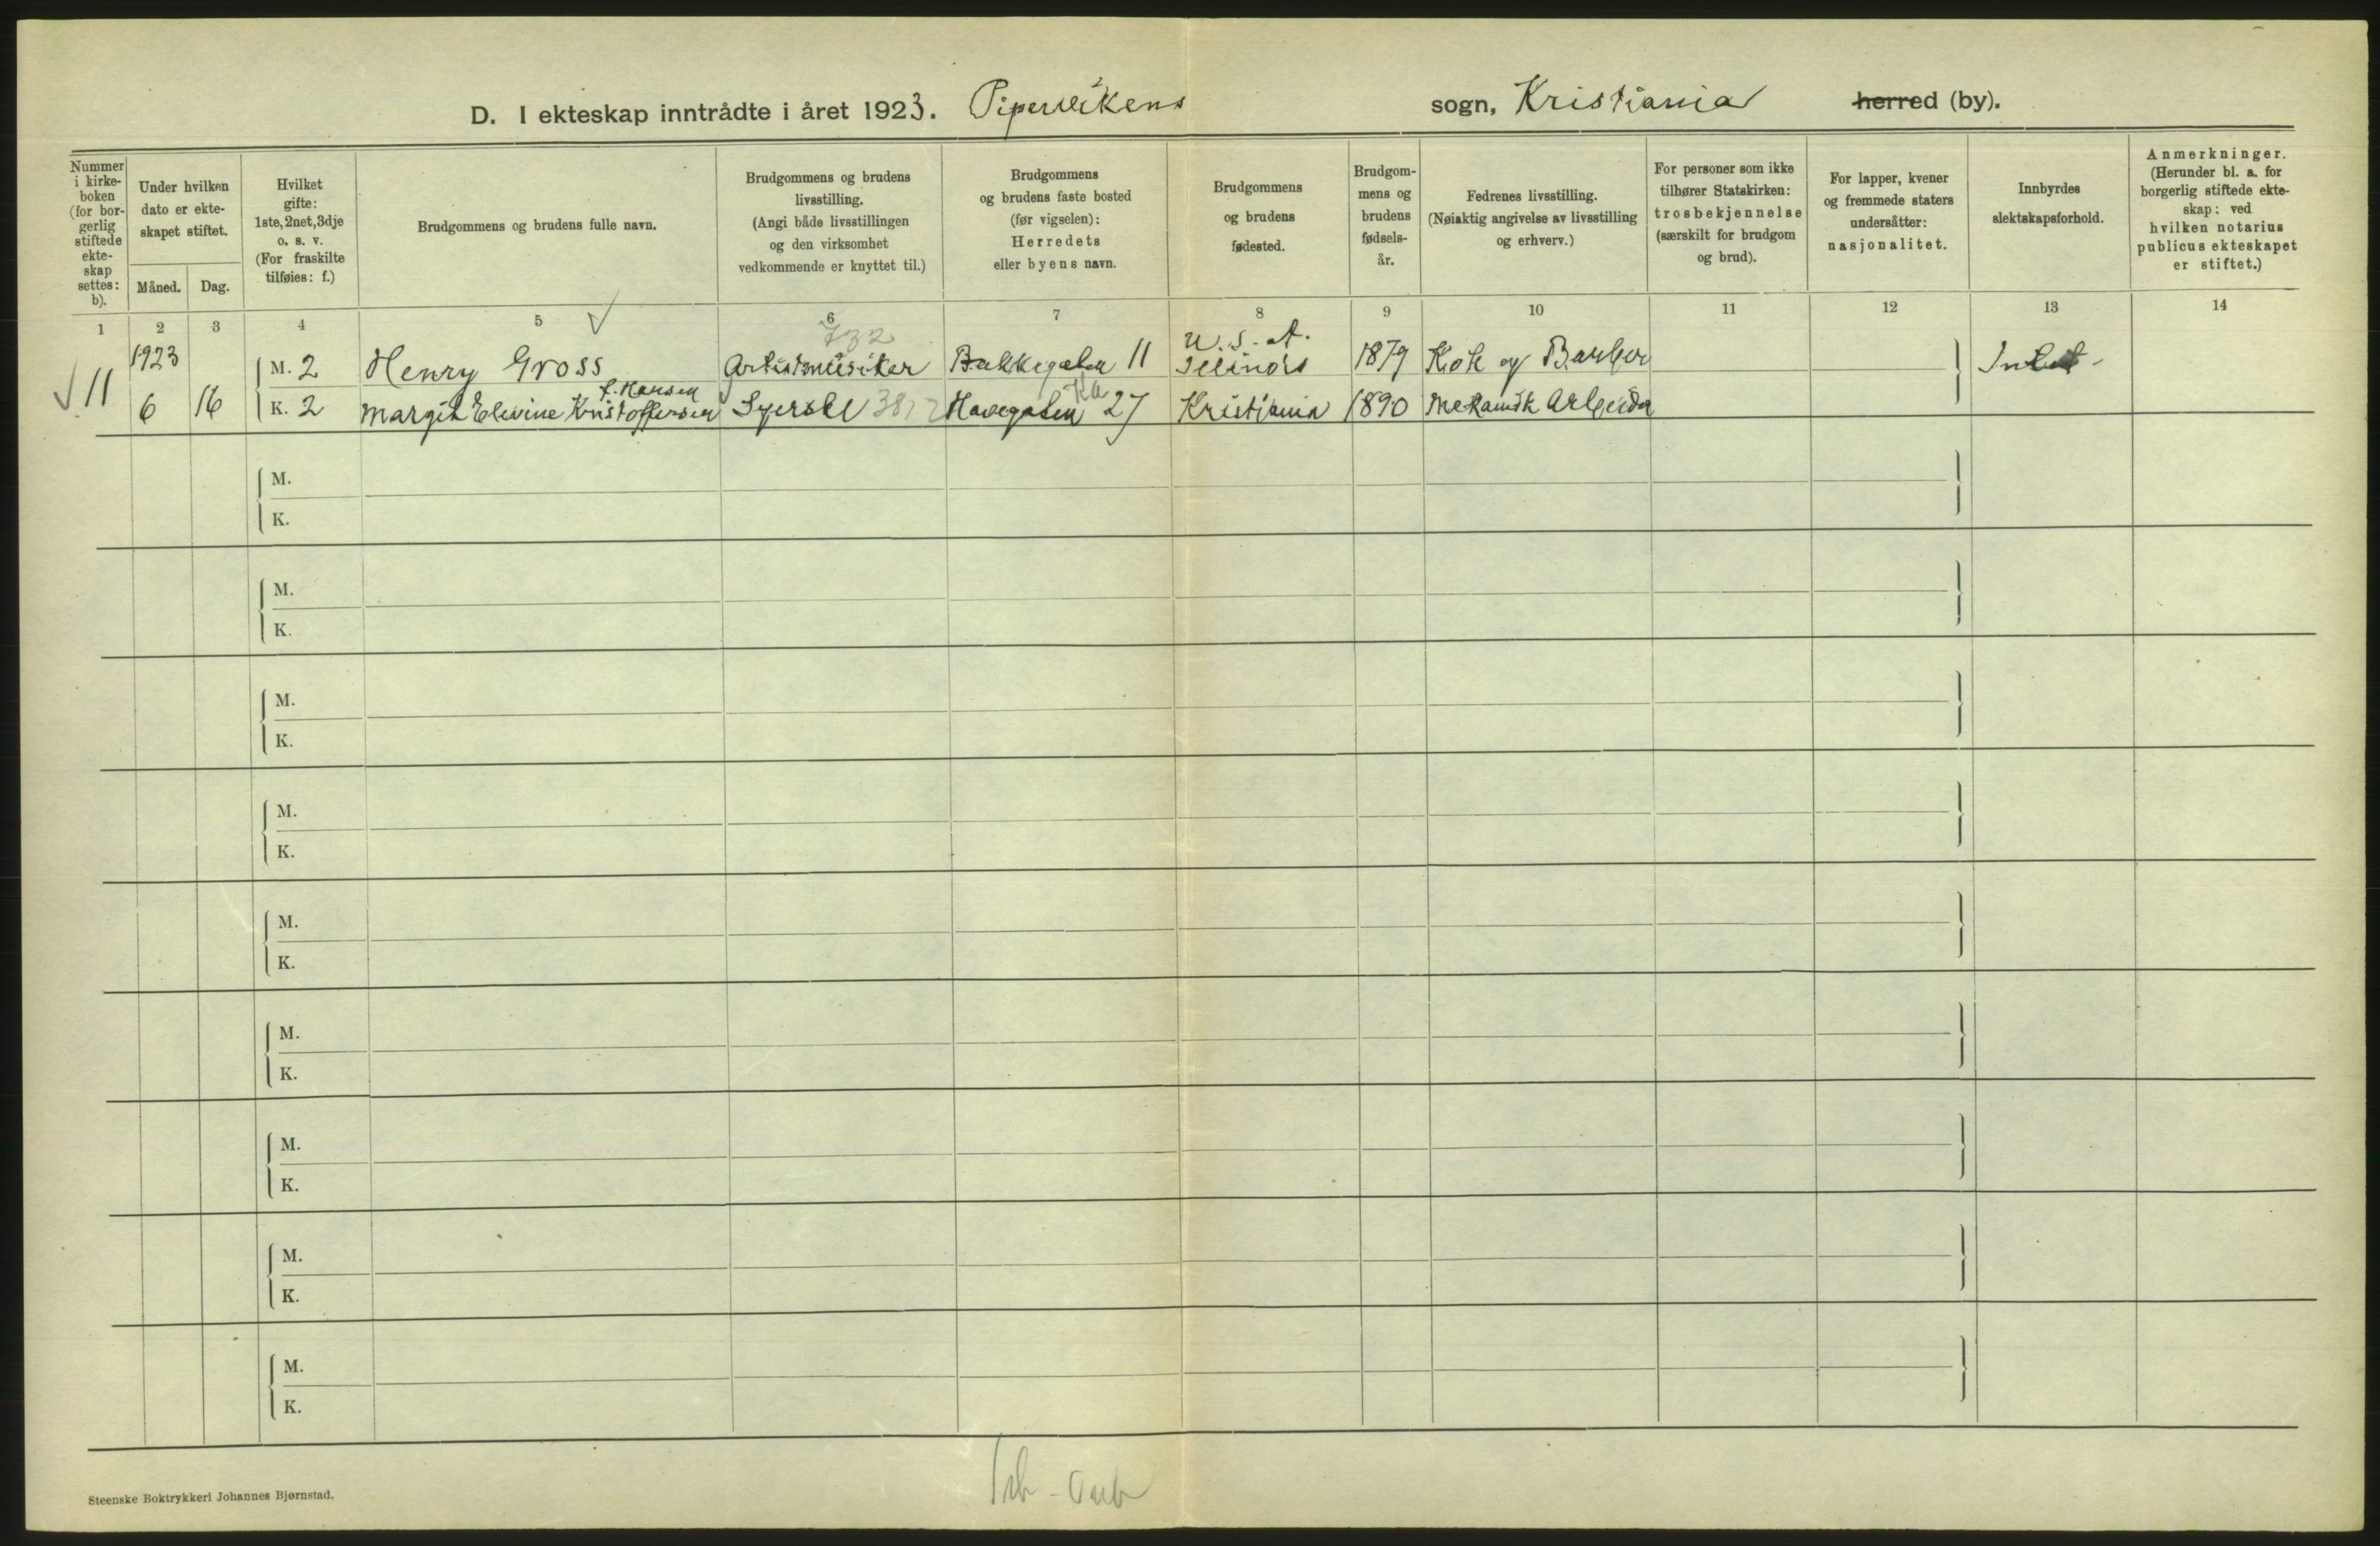 D. I ekteskap inntrådte i året 1923. Pipervikens sogn, Kristiania herred (by).
Nummer i kirke-boken (for bor-gerlig stiftede ekte-skap settes: b).
Under hvilken dato er ekte-skapet stiftet.
Måned. Dag.
Hvilket gifte: 1ste, 2net, 3dje o. s. v. (For fraskilte tilføies: f.)
Brudgommens og brudens fulle navn.
Brudgommens og brudens livsstilling. (Angi både livsstillingen og den virksomhet vedkommende er knyttet til.)
Brudgommens og brudens faste bosted (før vigselen): Herredets eller byens navn.
Brudgommens og brudens fødested.
Brudgom-mens og brudens fødsels-år.
Fedrenes livsstilling. (Nøiaktig angivelse av livsstilling og erhverv.)
For personer som ikke tilhører Statskirken: trosbekjennelse (særskilt for brudgom og brud).
For lapper, kvener og fremmede staters undersåtter: nasjonalitet.
Innbyrdes slektskapsforhold.
Anmerkninger. (Herunder bl. a. for borgerlig stiftede ekte-skap: ved hvilken notarius publicus ekteskapet er stiftet.)
1 2 3 4 5 6 7 8 9 10 11 12 13 14
732
U. S. A.
1923 M. 2 Henry Gross Artistmusiker Bakkegaten 11 Illinois 1879 Kok og Barber Intet
f. Hansen Ka
11 6 16 K. 2 Margit Elevine Kristoffersen Syerske Havegaten 27 Kristiania 1890 Mekanisk Arbeider
M.
K.
M.
K.
M.
K.
M.
K.
M.
K.
M.
K.
M.
K.
M.
K.
M.
K.
Steenske Boktrykkeri Johannes Bjørnstad.